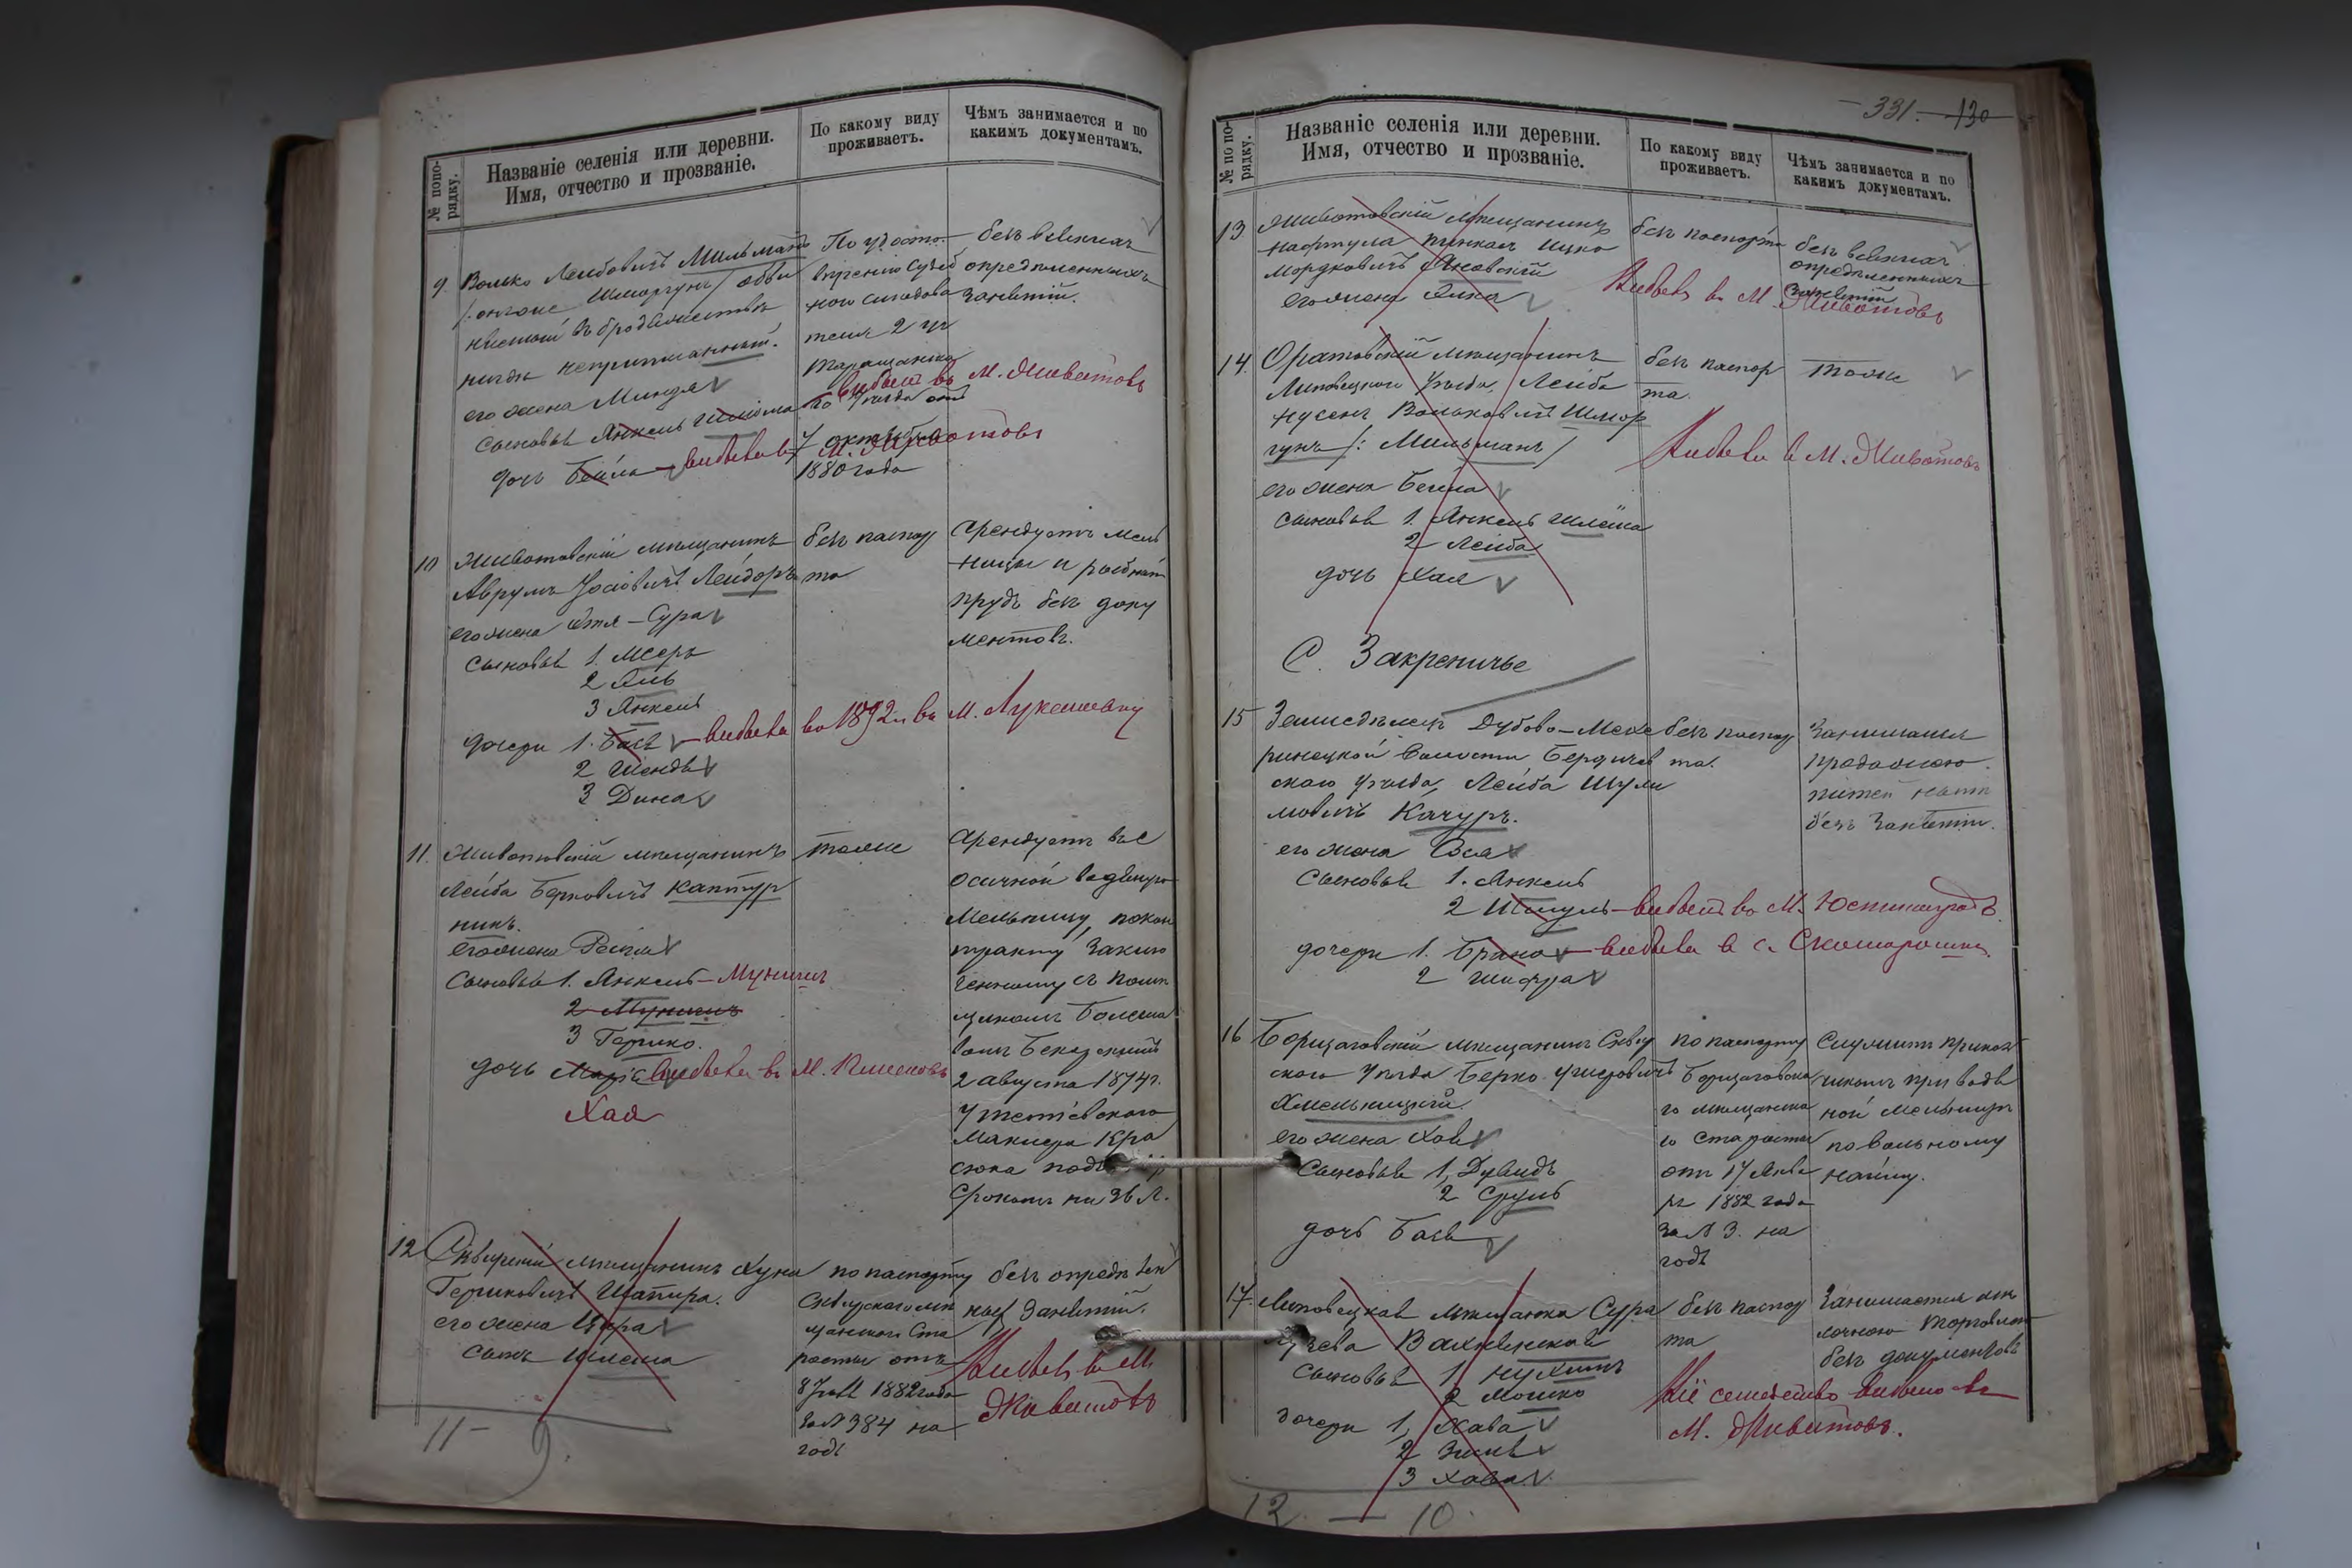 № попо-
рядку.
Названіе селенія или деревни.
Имя, отчество и прозваніе.
По какому виду
проживаетъ.
Чѣмъ занимается и по
какимъ документамъ.
9. Волько Лейбовичъ Мильманъ
/:онъ же Шморгунъ/ обви
няемый въ бродяжествѣ
нигдѣ неприписанный.
его жена Миндля
сыновья Янкель Шлёма
дочь Бейла — выбыла в М. Животовъ
По удосто-
вѣренію Судеб
наго слѣдова
теля 2 уч
Таращанска
го Уѣзда отъ
7 октября
1880 года
выбыли въ М. Животовъ
безъ всякихъ
опредѣленныхъ
занятій.
10 Животовскій мѣщанинъ
Аврумъ Іосіовичъ Лейдоръ
его жена Этя-Сура
сыновья 1. Мееръ
2
3 Янкель
дочери 1. Бася — выбыла въ 1892 г. въ М. Лукашевку
2 Шендля
3 Дина
безъ паспор
та
Арендуетъ мель
ницы и рыбный
прудъ безъ доку
ментовъ.
11. Животовскій мѣщанинъ
Лейба Берковичъ Каптур
никъ.
его жена Рейзя
Сыновья 1. Янкель-Мунишъ
2 Мунишъ
3 Гершко.
дочь выбыла въ М.
Хая
тоже
Арендуетъ въ с
Осичной водяную
мельницу, по кон
тракту заклю
ченному съ помѣ
щикомъ Болесла
вомъ
2 августа 1874 г.
у тетіевскаго
Маклера Кра
сюка подъ №
срокомъ на 36 л.
12 Сквирскій мѣщанинъ Хуна
Гершковичъ Шапира.
его жена
сынъ Шлема
по паспорту
Сквирскаго мѣ
щанскаго Ста
росты отъ
8 1882 года
за № 384 на
годъ
безъ опредѣлен
ныхъ занятій.
Выбылъ въ М.
Животовъ
11 - 9.
- 331. - 130
№ по по-
рядку.
Названіе селенія или деревни.
Имя, отчество и прозваніе.
По какому виду
проживаетъ.
Чѣмъ занимается и по
какимъ документамъ.
13. Животовскій мѣщанинъ
Нафтула Пинхасъ Ицко
Мордковичъ Яновскій
его жена
безъ паспорта
безъ всякихъ
опредѣленныхъ
занятій
Выбылъ въ М. Животовъ
14. Оратовскій мѣщанинъ
Липовецкаго Уѣзда, Лейба
Нусенъ Вольковичъ Шмор
гунъ /: Мильманъ/
его жена Бейла
сыновья 1. Янкель Шлёма
2 Лейба
дочь Хая
безъ паспор
та.
тоже
Выбыли в М. Животовъ
С. Закреничье
15 Земледѣлецъ Дубово-Мехе
ринецкой волости Бердичев
скаго Уѣзда, Лейба Шули
мовичъ Качуръ.
его жена Сося
сыновья 1. Янкель
2 Шмуль — выбылъ въ М. Юстинградъ
дочери 1. Брана — выбыла в с. Скоморошки
2 Шифра
безъ паспор
та.
Занимался
продажею
питей нынѣ
безъ занятій.
16 Борщаговскій мѣщанинъ Сквир
скаго Уѣзда Берко Ушеровичъ
Хмельницкій.
его жена Хая
Сыновья 1, Дувидъ
2 Сруль
дочь Бася
по паспорту
Борщаговска
го мѣщанска
го старосты
отъ 17 Янва
ря 1882 года
за № 3. на
годъ
Служитъ прикащ
икомъ при водя
ной мельницѣ
по вольному
найму.
17. Липовецкая мѣщанка Сура
Вахнянская
сыновья 1, Нухимъ
2 Мошко
дочери 1, Хава
2
3 Хава
безъ паспор
та
Занимается ме
лочною торговлею
безъ документовъ
Всё семейство выбыло въ
М. Животовъ.
12 - 10.